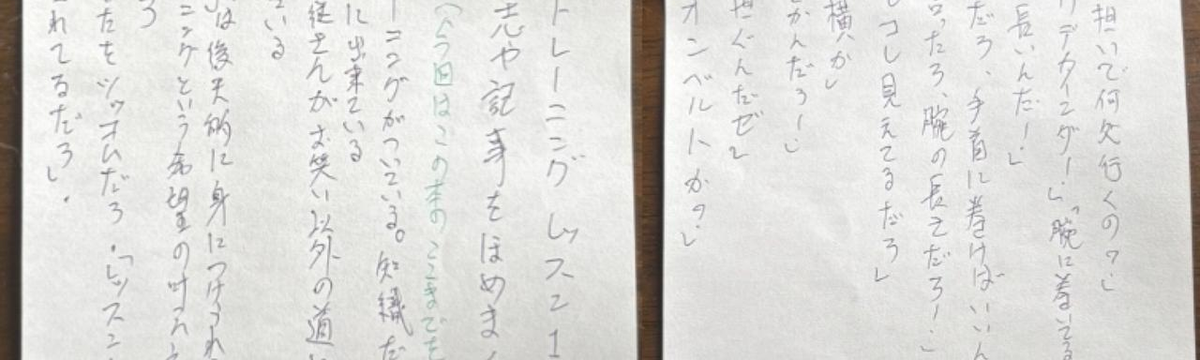 トレーニング レッスン1
志や記事をほめまく
(今回はこの本のここまでを
ーニングがついている。知識だ
に出来ている
継さんがお笑い以外の道
ている
は後天的に身につけられ
ニングという希望の叶う
ろ
たをツッコむだろ。「レッスン
れてるだろ」.
担いで何処行くの?」
デカインダー!」「腕に巻いてる
長いんだ!」
だろ、手首に巻けばいいん
言ったろ、腕の長さだろー!」
コレ見えてるだろ」
横か」
とかんだろー!」
担ぐんだぜ」
オンベルトか?」